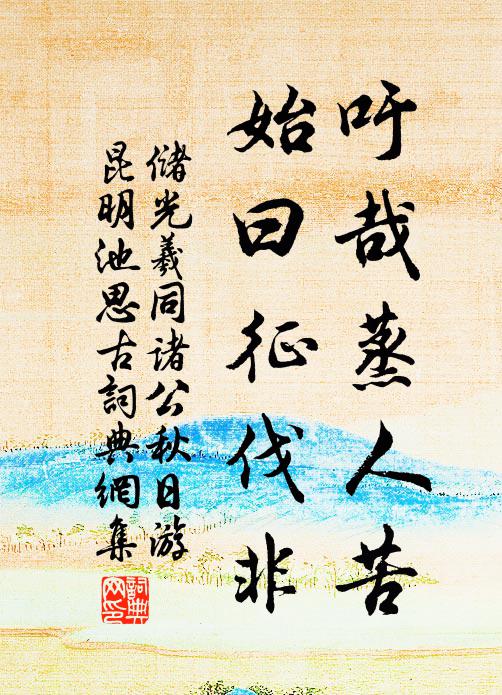 吁哉蒸人苦
始曰征伐非
储光羲同诸公秋日游
昆明池思古詞典網集
詞典
网印